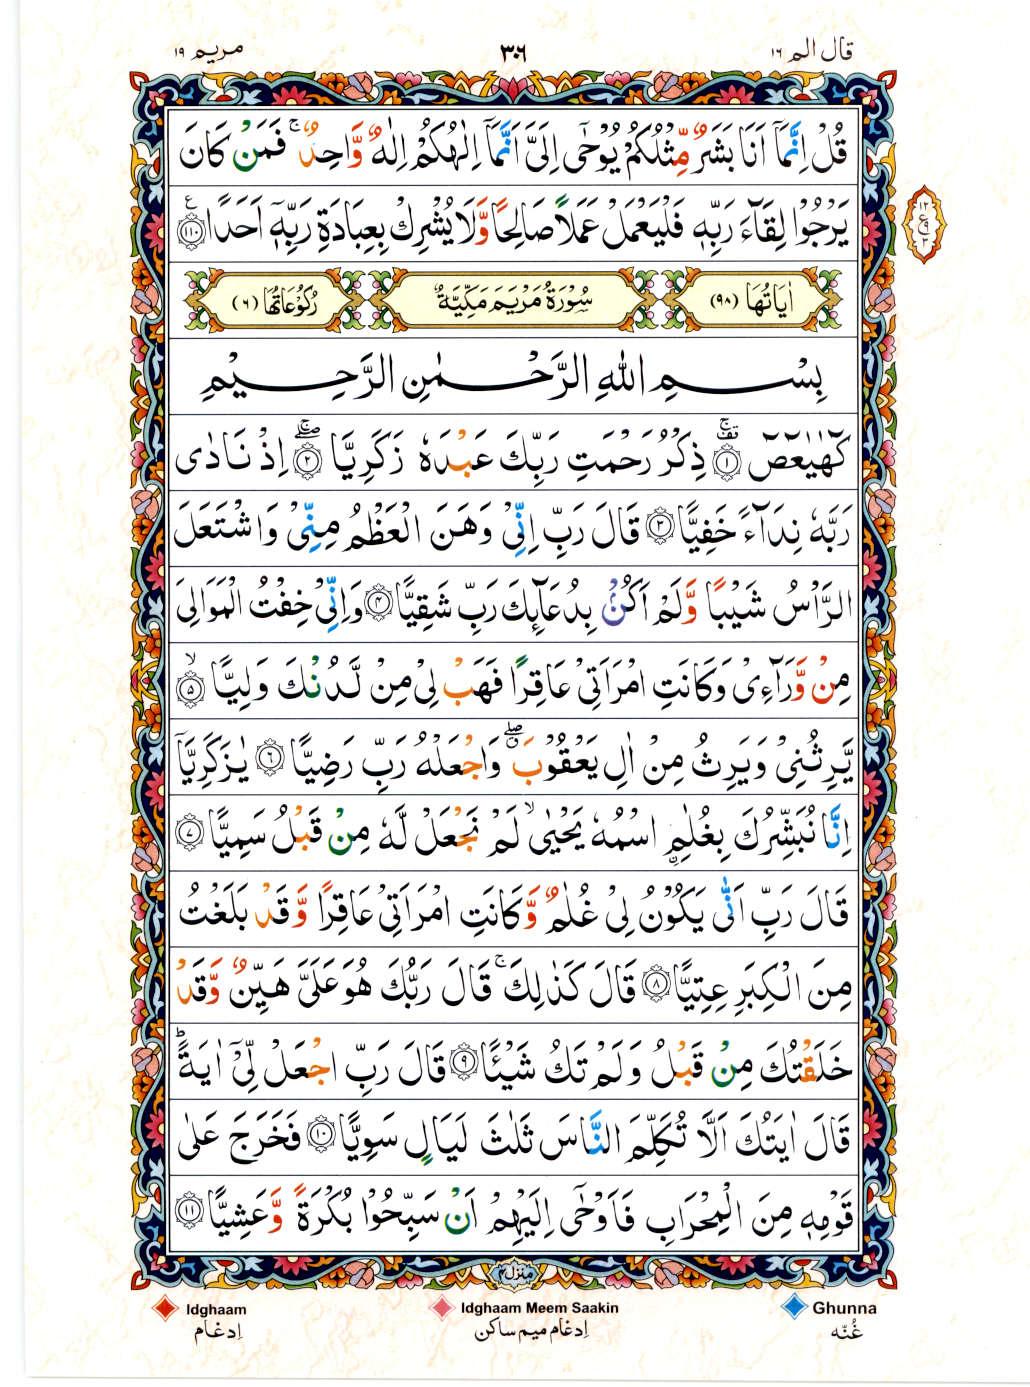 قال الم ۱۶
۳۰۶
مریم ۱۹
قُلْ اِنَّمَاۤ اَنَا بَشَرٌ مِّثْلُكُمْ یُوْحٰۤى اِلَیَّ اَنَّمَاۤ اِلٰهُكُمْ اِلٰهٌ وَّاحِدٌ ۚ فَمَنْ كَانَ
یَرْجُوْا لِقَآءَ رَبِّهٖ فَلْیَعْمَلْ عَمَلًا صَالِحًا وَّلَا یُشْرِكْ بِعِبَادَةِ رَبِّهٖۤ اَحَدًا ع ۱۱۰
۱۲
ع
۹
۳
اٰیَاتُهَا (۹۸)
سُوْرَةُ مَرْیَمَ مَكِّیَّةٌ
رُكُوْعَاتُهَا (۶)
بِسْمِ اللهِ الرَّحْمٰنِ الرَّحِیْمِ
كٓهٰیٰعٓصٓ ۱ ذِكْرُ رَحْمَتِ رَبِّكَ عَبْدَهٗ زَكَرِیَّا ۲ اِذْ نَادٰى
رَبَّهٗ نِدَآءً خَفِیًّا ۳ قَالَ رَبِّ اِنِّیْ وَهَنَ الْعَظْمُ مِنِّیْ وَاشْتَعَلَ
الرَّاْسُ شَیْبًا وَّلَمْ اَكُنْۢ بِدُعَآئِكَ رَبِّ شَقِیًّا ۴ وَاِنِّیْ خِفْتُ الْمَوَالِیَ
مِنْ وَّرَآءِیْ وَكَانَتِ امْرَاَتِیْ عَاقِرًا فَهَبْ لِیْ مِنْ لَّدُنْكَ وَلِیًّا ۙ ۵
یَّرِثُنِیْ وَیَرِثُ مِنْ اٰلِ یَعْقُوْبَ ۖ وَاجْعَلْهُ رَبِّ رَضِیًّا ۶ یٰزَكَرِیَّاۤ
اِنَّا نُبَشِّرُكَ بِغُلٰمِ ۟ اسْمُهٗ یَحْیٰى ۙ لَمْ نَجْعَلْ لَّهٗ مِنْ قَبْلُ سَمِیًّا ۷
قَالَ رَبِّ اَنّٰى یَكُوْنُ لِیْ غُلٰمٌ وَّكَانَتِ امْرَاَتِیْ عَاقِرًا وَّقَدْ بَلَغْتُ
مِنَ الْكِبَرِ عِتِیًّا ۸ قَالَ كَذٰلِكَ ۚ قَالَ رَبُّكَ هُوَ عَلَیَّ هَیِّنٌ وَّقَدْ
خَلَقْتُكَ مِنْ قَبْلُ وَلَمْ تَكُ شَیْئًا ۹ قَالَ رَبِّ اجْعَلْ لِّیْۤ اٰیَةً ؕ
قَالَ اٰیَتُكَ اَلَّا تُكَلِّمَ النَّاسَ ثَلٰثَ لَیَالٍ سَوِیًّا ۱۰ فَخَرَجَ عَلٰى
قَوْمِهٖ مِنَ الْمِحْرَابِ فَاَوْحٰۤى اِلَیْهِمْ اَنْ سَبِّحُوْا بُكْرَةً وَّعَشِیًّا ۱۱
منزل ۴
Ghunna
غُنّه
Idghaam Meem Saakin
اِدغام میم ساكن
Idghaam
اِدغام